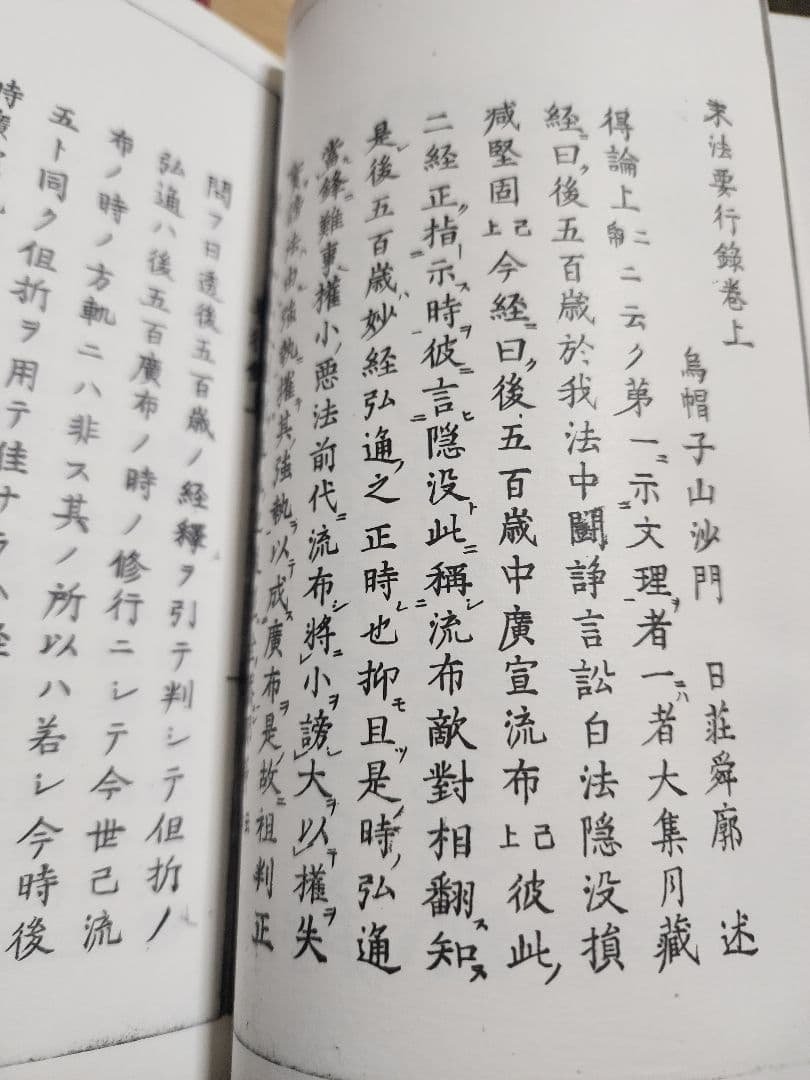 末法要行錄卷上
烏帽子山沙門 日莊舜廓 述
得論上ニ二云ク第一ニ示文理ヲ者一ニハ者大集月藏
経ニ曰、後五百歳於我法中鬪諍言訟白法隠没損
減堅固已上今経ニ曰、後五百歳中廣宣流布已上彼此ノ
二経正ク指示スー時ヲ彼ニ言ヒ隠没ト此ニ稱シ流布敵對相翻ス知ス
是レ後五百歳ハ妙経弘通ノ之正時レ也抑モ且ツ是ノ時ノ弘通
當鋒難事權小ノ悪法前代ニ流布シ將ニ小ヲ謗シ大ヲ以テ權ヲ失
執權ヲ其ノ強執ヲ以テ成ス廣布ヲ是ノ故ニ祖判正
問フ日遠後五百歳ノ経釋ヲ引テ判シテ但折ノ
弘通ハ後五百廣布ノ時ノ修行ニシテ今世已流
布ノ時ノ方軌ニハ非ス其ノ所以ハ若シ今時後
五ト同ク但折ヲ用テ佳ナラハ